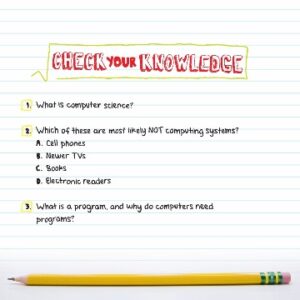 CHECK YOUR KNOWLEDGE
1. What is computer science?
2. Which of these are most likely NOT computing systems?
A. Cell phones
B. Newer TVs
C. Books
D. Electronic readers
3. What is a program, and why do computers need
programs?